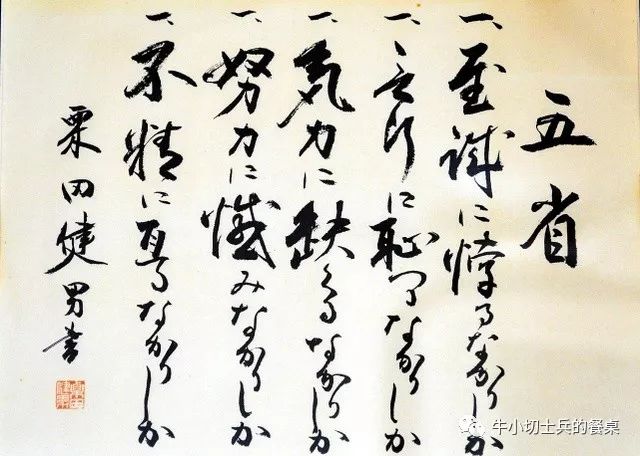 五省
一、至誠に悖るなかりしか
一、言行に恥つるなかりしか
一、気力に缺くるなかりしか
一、努力に憾みなかりしか
一、不精に亘るなかりしか
栗田健男書
牛小切士兵的餐桌